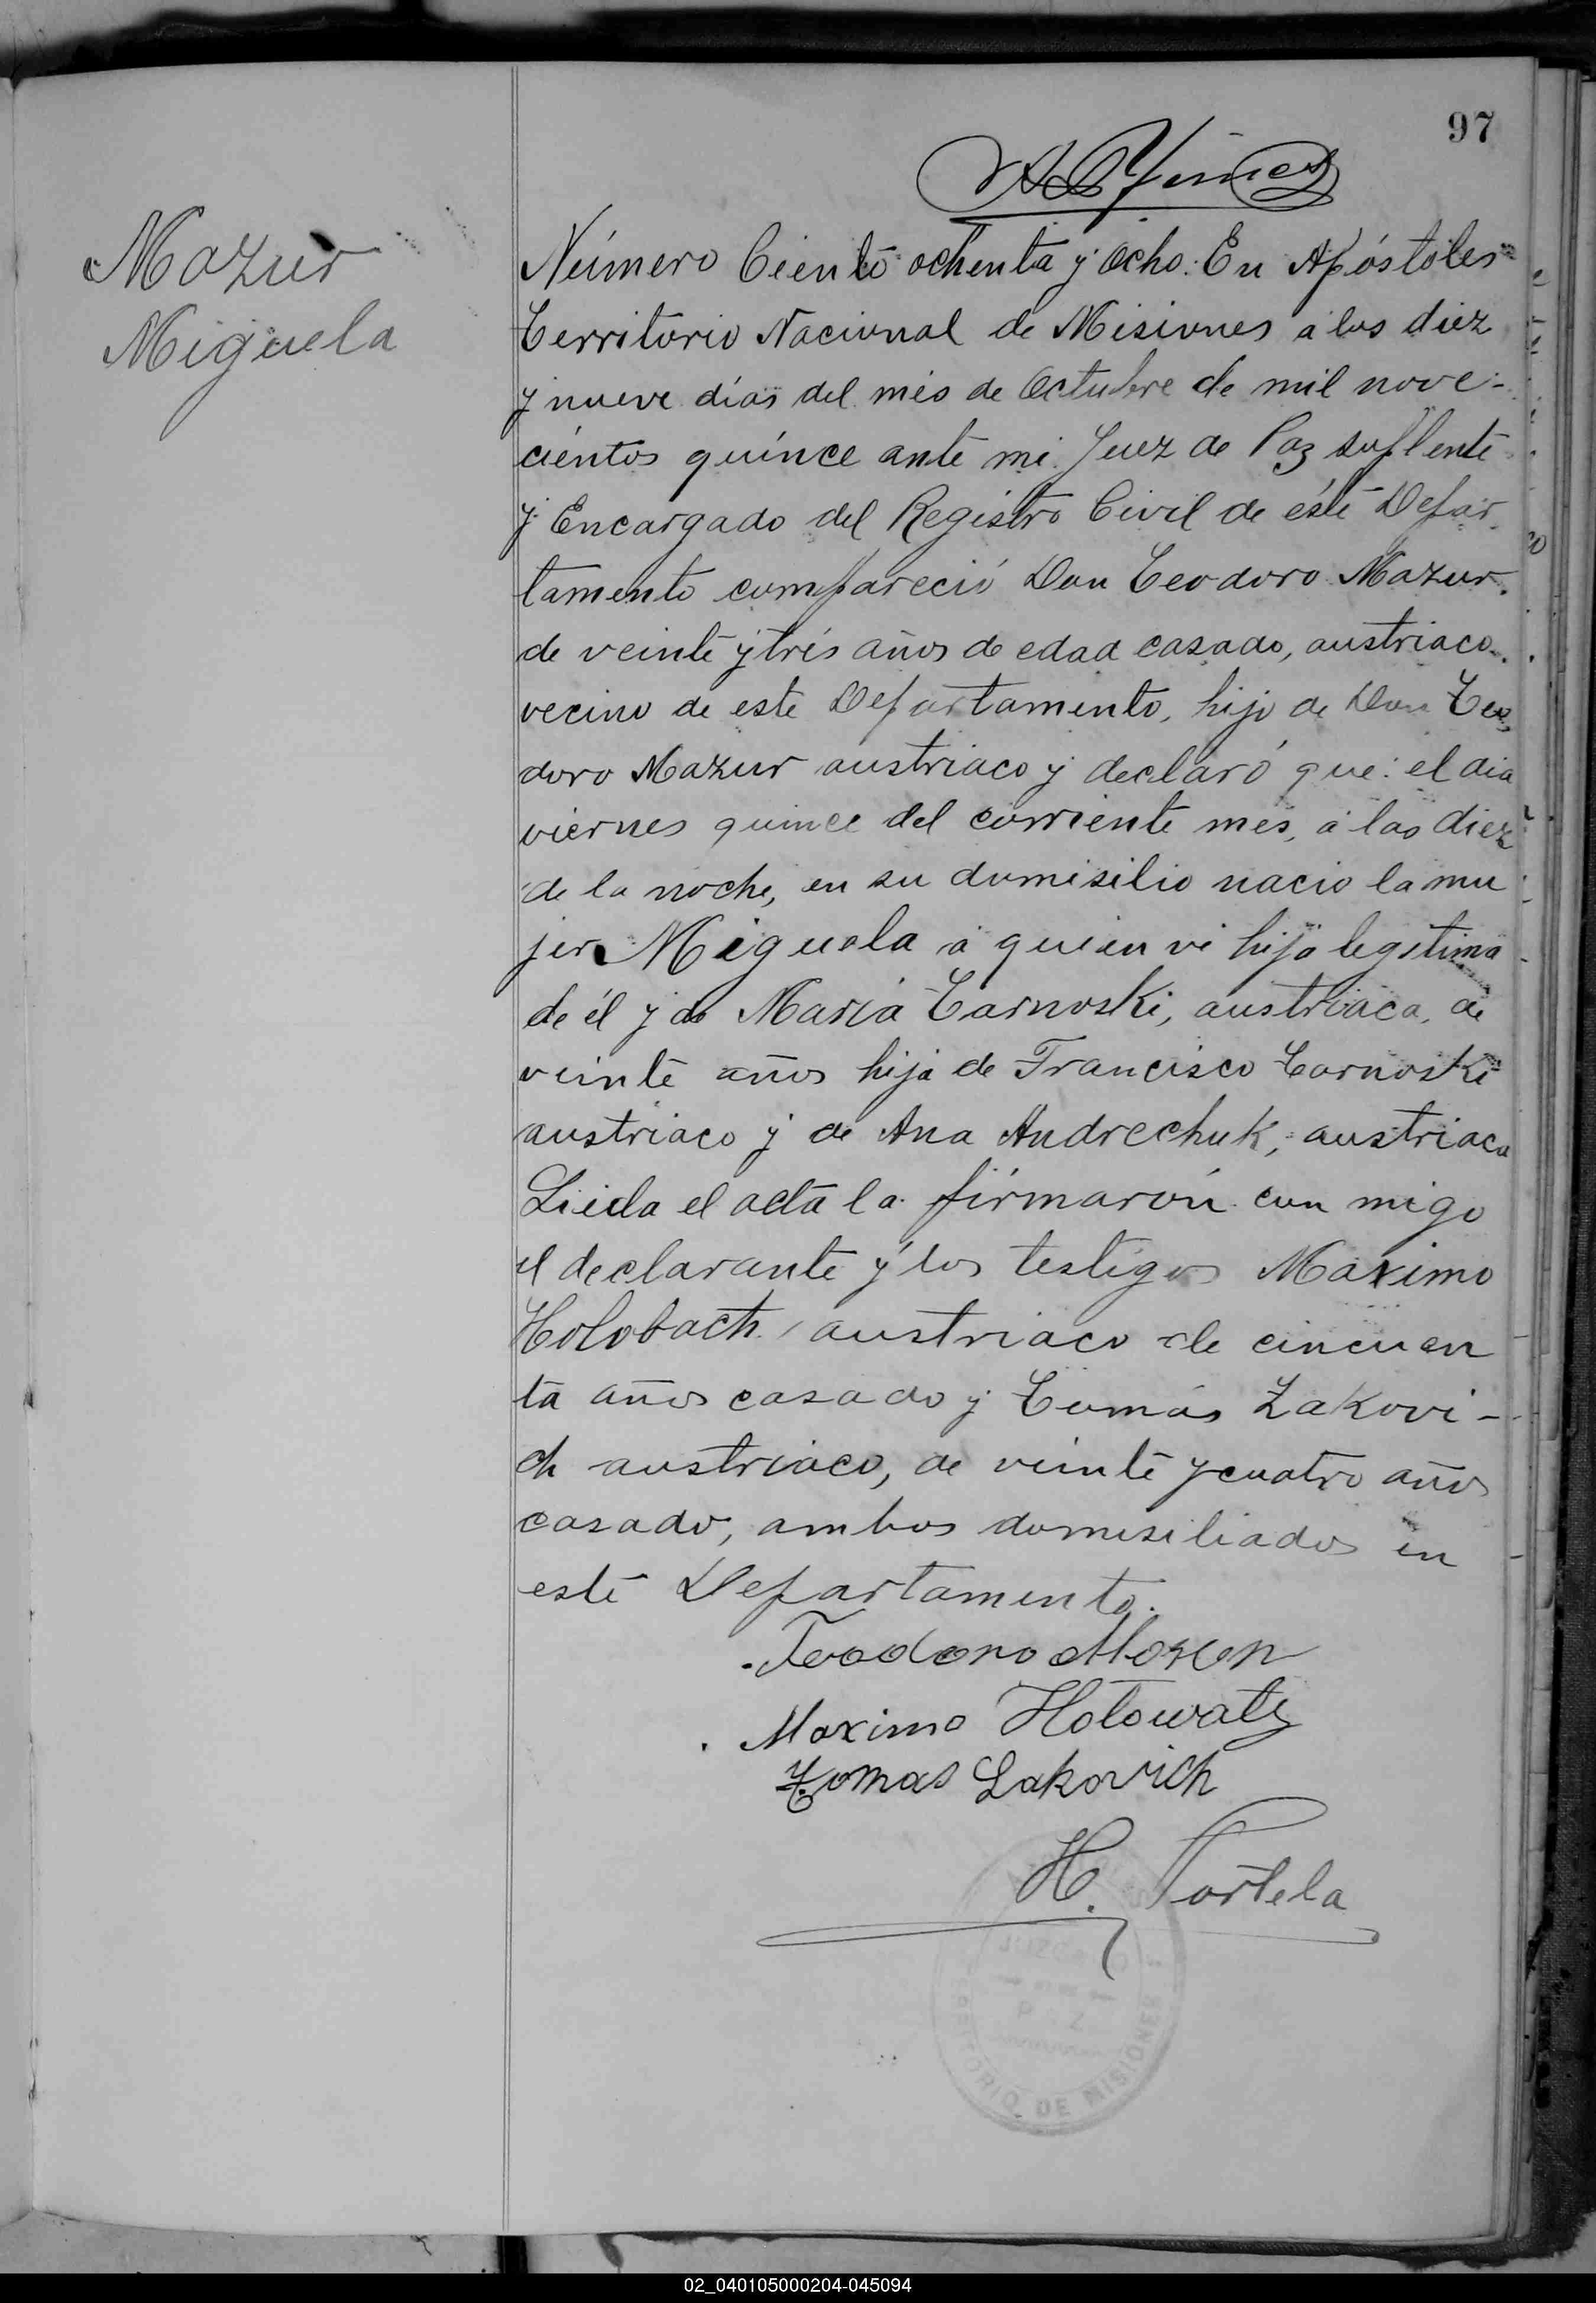 97
Mazur
Miguela
Número Ciento ochenta y ocho: En Apóstoles
Territorio Nacional de Misiones a los diez
y nueve días del més de Octubre de mil nove-
cientos quince ante mi Juez de Paz suplente
y Encargado del Registro Civil de éste Depar
tamento compareció Don Teodoro Mazur.
de veinte y trés años de edad casado, austriaco.
vecino de este Departamento, hijo de Don Teo
doro Mazur austriaco y declaró que: el dia
viernes quince del corriente mes, a las diez
de la noche, en su domisilio nacio la mu
jer Miguela a quien vi hija legitima
de él y de María Tarnoski, austriaca, de
veinte años hija de Francisco Tarnoski
austriaco y de Ana Andrechuk, austriaca
Leida el acta la firmarón con migo
el declarante y los testigos Maximo
Holobach, austriaco de cincuen
ta años casado y Tomás Zakovi-
ch austriaco, de veinte y cuatro años
casado, ambos domisiliados en
este Departamento.
Teodoro Mozur
Maximo Hotowaty
Tomas Lakovich
H. Portela
JUZGADO
DE
PAZ
TERRITORIO DE MISIONES
02_040105000204-045094